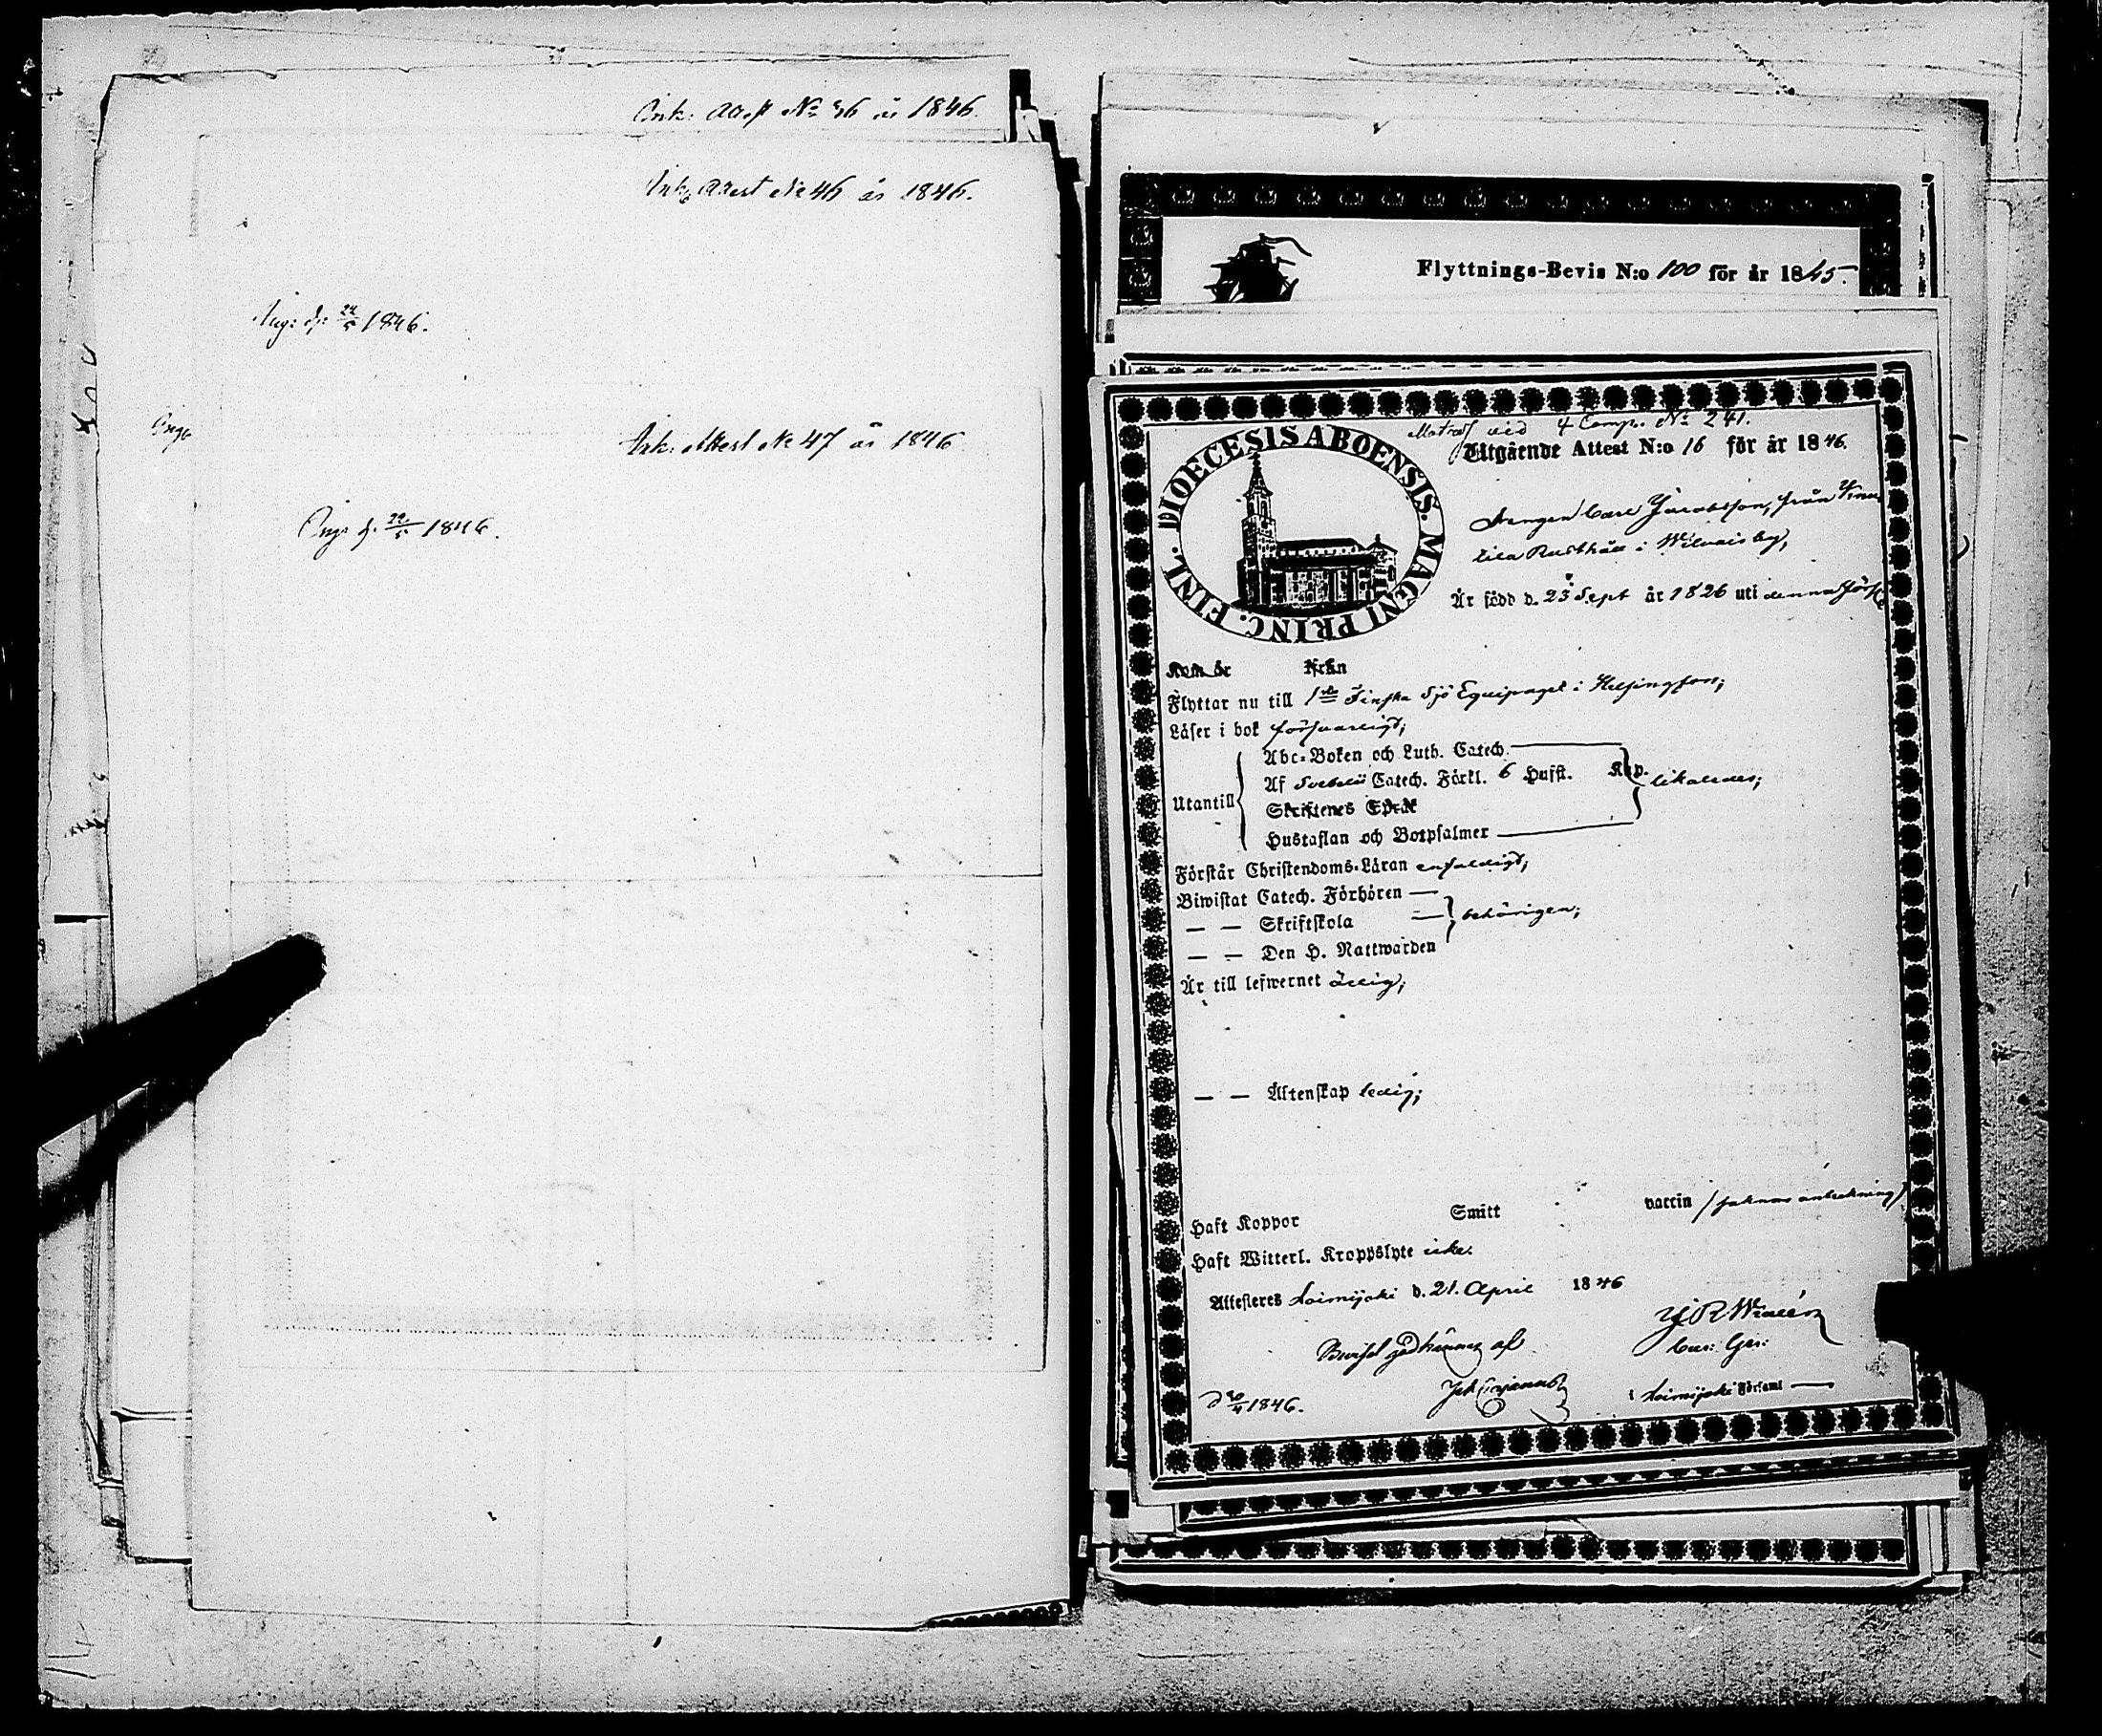 Ink: Attest No 36 år 1846.
Ink: Attest No 46 år 1846.
Ing: d: 22/5 1846.
Ing:
Ink: Attest No 47 år 1846
Ing: d. 22/5 1846.
Flyttnings-Bevis N:o 100 för år 1845.
DIOECESIS ABOENSIS. MAGNI PRINC. FINL.
vid 4 Comp. No 241.
Utgående Attest N:o 16 för år 1846.
Drengen Carl Jacobsson, från
lila Rusthåll i by,
Är född d. 23 Sept år 1826 uti denna Förs
Kom år Från
Flyttar nu till 1sta Finska Sjö Equipaget i Helsingfors;
Läser i bok försvarligt;
Utantill
Abc-Boken och Luth. Catech.
Af Svebelii Catech. Förkl. 6 Hufst. Kap. likaledes;
Skriftenes Språk
Hustaflan och Botpsalmer
Förstår Christendoms-Läran enfaldigt;
Biwistat Catech. Förhören —
— — Skriftskola — behörigen;
— — Den H. Nattwarden
Är till lefwernet ärlig;
— — Äktenskap ledig;
Haft Koppor Smitt vaccin / saknas anteckning /
Haft Witterl. Kroppslyte icke.
Attesteras Loimijoki d. 21. April 1846
Beviset godkännes af
Cur: Ger:
1846.
i Loimijoki Förſaml —